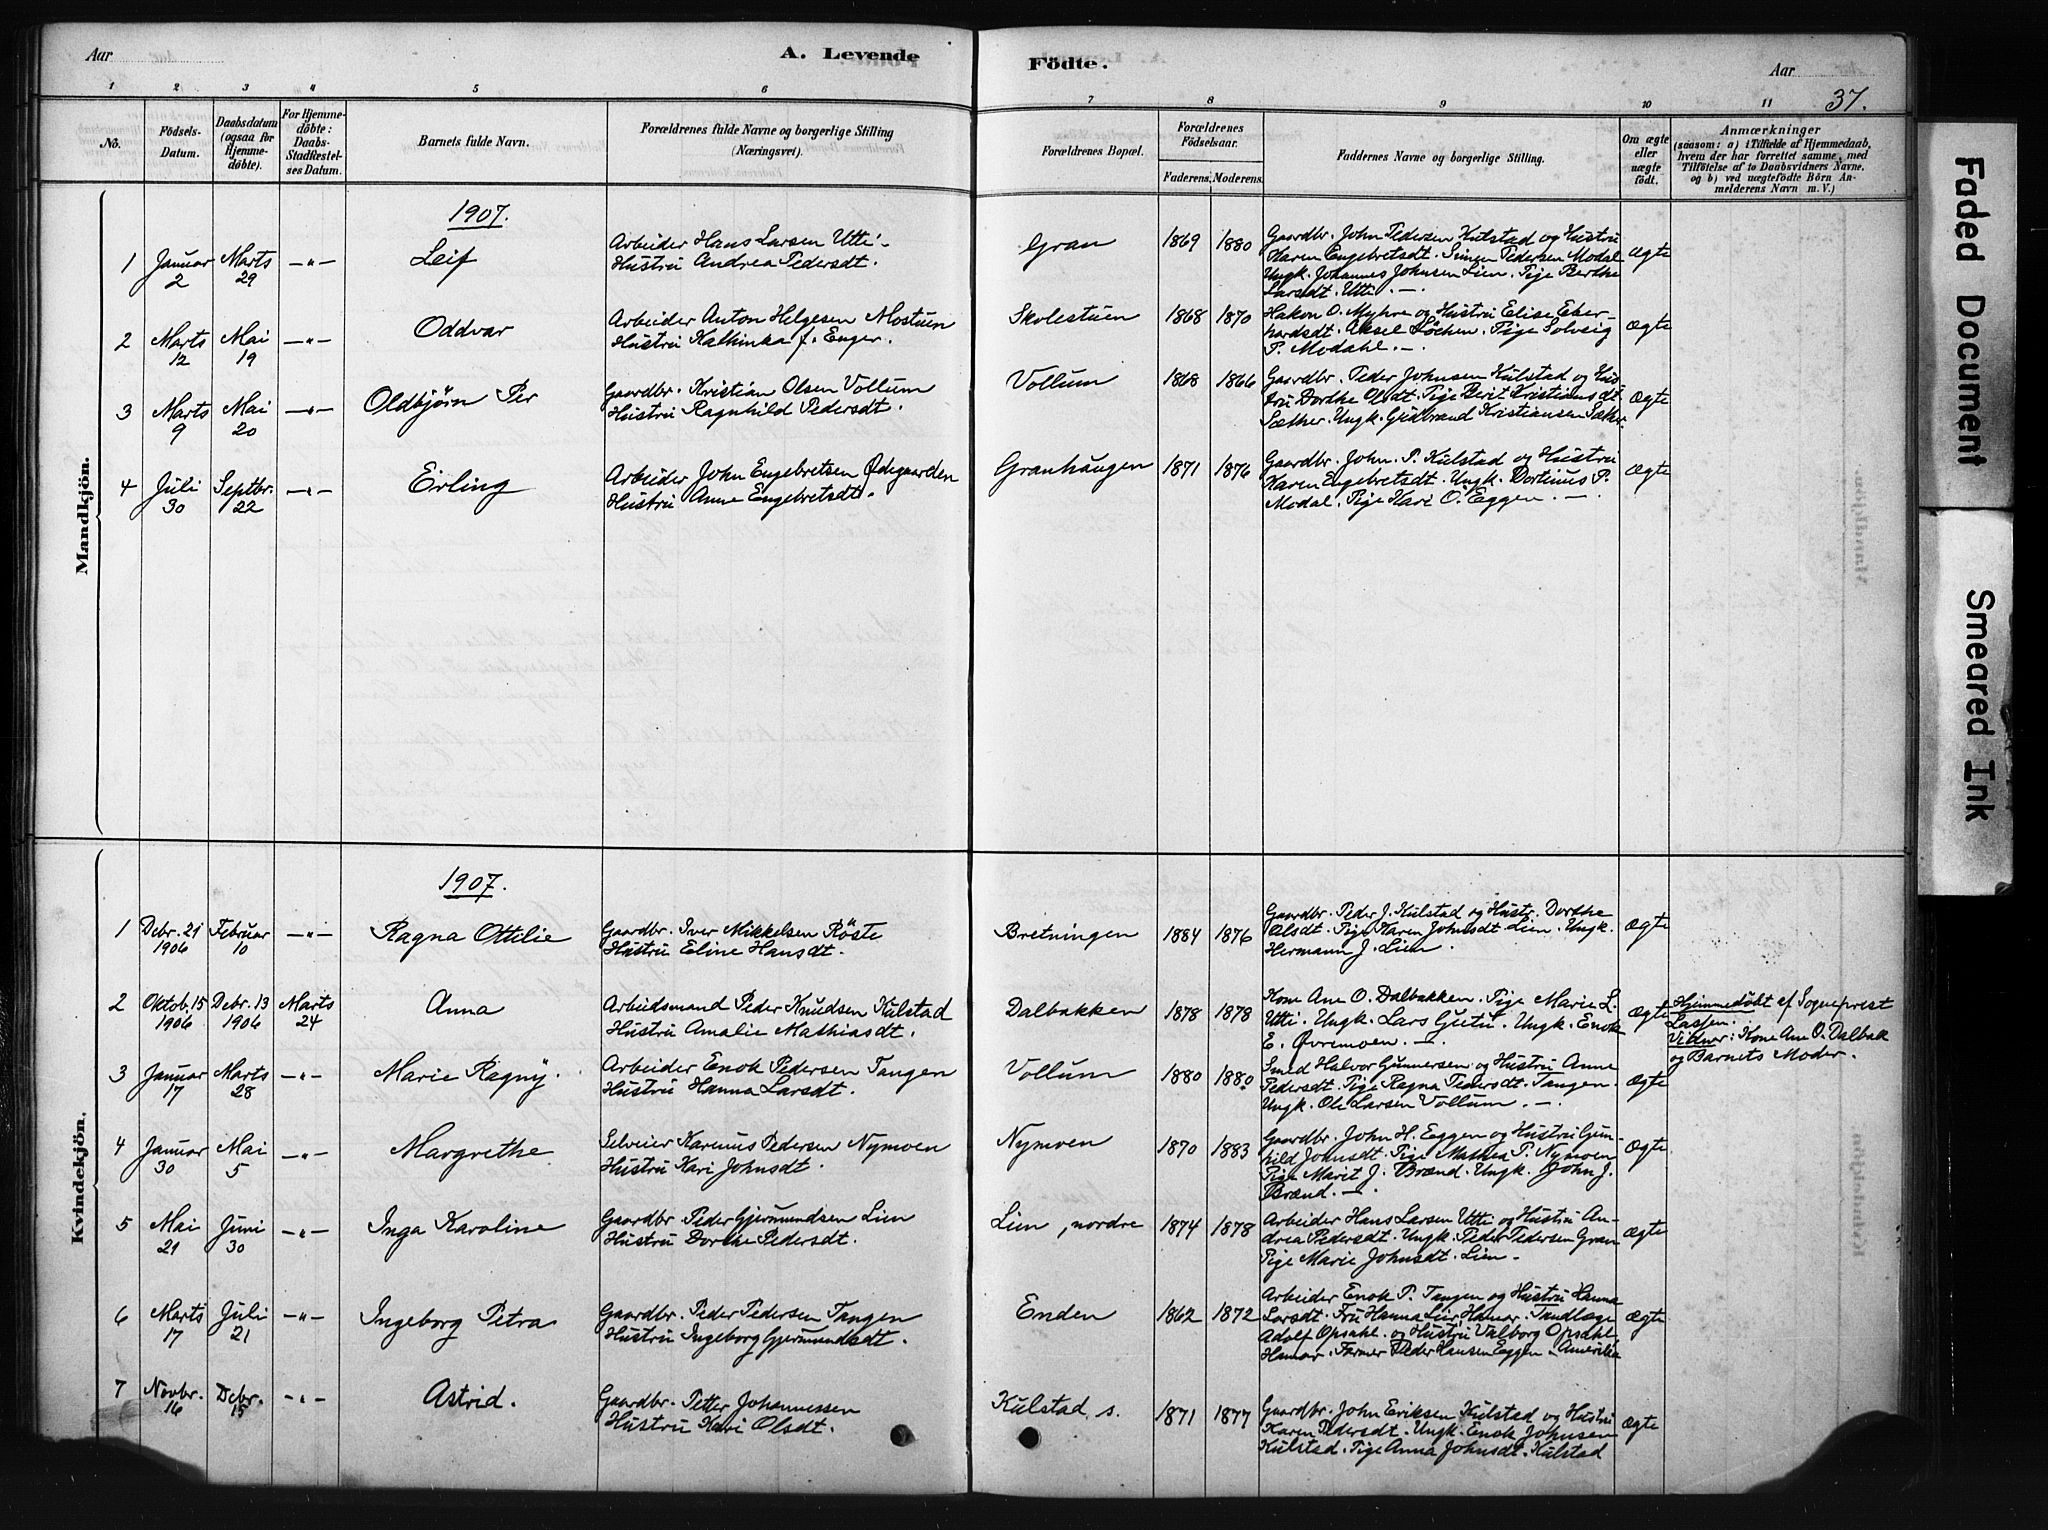 Aar
A. Levende
Födte.
Aar
37.
1 2 3 4 5 6 7 8 9 10 11
No.
Födsels-
Datum.
Daabsdatum
(ogsaa for
Hjemme-
döbte).
For Hjemme-
döbte:
Daabs-
Stadfæstel-
ses Datum.
Barnets fulde Navn.
Forældrenes fulde Navne og borgerlige Stilling
(Næringsvei).
Forældrenes Bopæl.
Forældrenes
Födselsaar.
Faderens. Moderens.
Faddernes Navne og borgerlige Stilling.
Om ægte
eller
uægte
födt.
Anmærkninger
(saasom: a) i Tilfælde af Hjemmedaab,
hvem der har forrettet samme, med
Tilföielse af to Daabsvidners Navne,
og b) ved uægtefödte Börn An-
melderens Navn m. V.)
Mandkjön.
1907.
1 Januar 2 Marts 29 —"— Leif
Arbeider Hans Larsen Utti
Hustru Andrea Pedersdt.
Gran 1869 1880
Gaardbr. John Pedersen Kulstad og Hustru
Karen Engebretsdt. Simen Pedersen Modal
Ungk. Johannes Johnsen Lien. Pige Berthe
Larsdt. Utti. —
Ægte
2 Marts 12 Mai 19 —"— Oddvar
Arbeider Anton Helgesen Mostuen
Hustru Kathinka f. Enger.
Skolestuen 1868 1870
Hakon O. Myhre og Hustru Elise Eber-
hardsdt. Aksel Löchen. Pige Solveig
P. Modahl. —
Ægte
3 Marts 9 Mai 20 —"— Oldbjörn Per
Gaardbr. Kristian Olsen Vollum
Hustru Ragnhild Pedersdt.
Vollum 1868 1866
Gaardbr. Peder Johnsen Kulstad og Hus-
tru Dorthe Olsdt. Pige Berit Kristiansdt
Sæther. Ungk. Gudbrand Kristiansen Sæther.
Ægte
4 Juli 30 Septbr. 22 —"— Erling
Arbeider John Engebretsen Ødegaarden
Hustru Anne Engebretsdt.
Granhaugen 1871 1876
Gaardbr. John. P. Kulstad og Hustru
Karen Engebretsdt. Ungk. Dortinus P.
Modal. Pige Kari O. Eggen. —
Ægte
Kvindekjön.
1907.
1 Debr. 21 1906 Februar 10 —"— Ragna Ottilie
Gaardbr. Iver Mikkelsen Röste
Hustru Eline Hansdt.
Bretningen 1884 1876
Gaardbr. Peder J. Kulstad og Hustr. Dorthe
Olsdt. Pige Karen Johnsdt Lien. Ungk.
Hermann J. Lien.
Ægte
2 Oktob. 15 1906 Debr. 13 1906 Marts 24 Anna
Arbeidsmand Peder Knudsen Kulstad
Hustru Amalie Mathiasdt.
Dalbakken 1878 1878
Kone Ane O. Dalbakken. Pige Marie L.
Utti. Ungk. Lars Gutu. Ungk. Enok
E. Øvremoen. —
Ægte
Hjemmedøbt af Sogneprest
Lassen.
Vidner: Kone Ane O. Dalbak
og Barnets Moder.
3 Januar 17 Marts 28 —"— Marie Ragny.
Arbeider Enok Pedersen Tangen
Hustru Hanna Larsdt.
Vollum 1880 1880
Smed Halvor Gunnersen og Hustru Anne
Pedersdt. Pige Ragna Pedersdt. Tangen.
Ungk. Ole Larsen Vollum. —
Ægte
4 Januar 30 Mai 5 —"— Margrethe
Selveier Karenus Pedersen Nymoen
Hustru Kari Johnsdt.
Nymoen 1870 1883
Gaardbr. John H. Eggen og Hustru Gun-
hild Johnsdt. Pige Mathea P. Nymoen
Pige Marit J. Brænd. Ungk. John J.
Brænd. —
Ægte
5 Mai 21 Juni 30 —"— Inga Karoline
Gaardbr Peder Gjermundsen Lien
Hustru Dorthe Pedersdt.
Lien, nordre 1874 1878
Arbeider Hans Larsen Utti og Hustru An-
drea Pedersdt. Ungk. Peder Pedersen Gran
Pige Marie Johnsdt. Lien —
Ægte
6 Marts 17 Juli 21 —"— Ingeborg Petra
Gaardbr. Peder Pedersen Tangen
Hustru Ingeborg Gjermundsdt.
Enden 1862 1872
Arbeider Enok P. Tangen og Hustru Hanna
Larsdt. Fru Hanna Lier Hamar. Tandlæge
Adolf Opsahl. og Hustru Valborg Opsahl,
Hamar. Farmer Peder Hansen Eggen — Amerika
Ægte
7 Novbr. 16 Debr. 15 —"— Astrid.
Gaardbr. Petter Johannessen
Hustru Kari Olsdt.
Kulstad s. 1871 1877
Gaardbr. John Eriksen Kulstad og Hustru
Karen Pedersdt. Ungk. Enok Johnsen
Kulstad. Pige Anna Johnsdt. Kulstad
Ægte
Faded Document
Smeared Ink